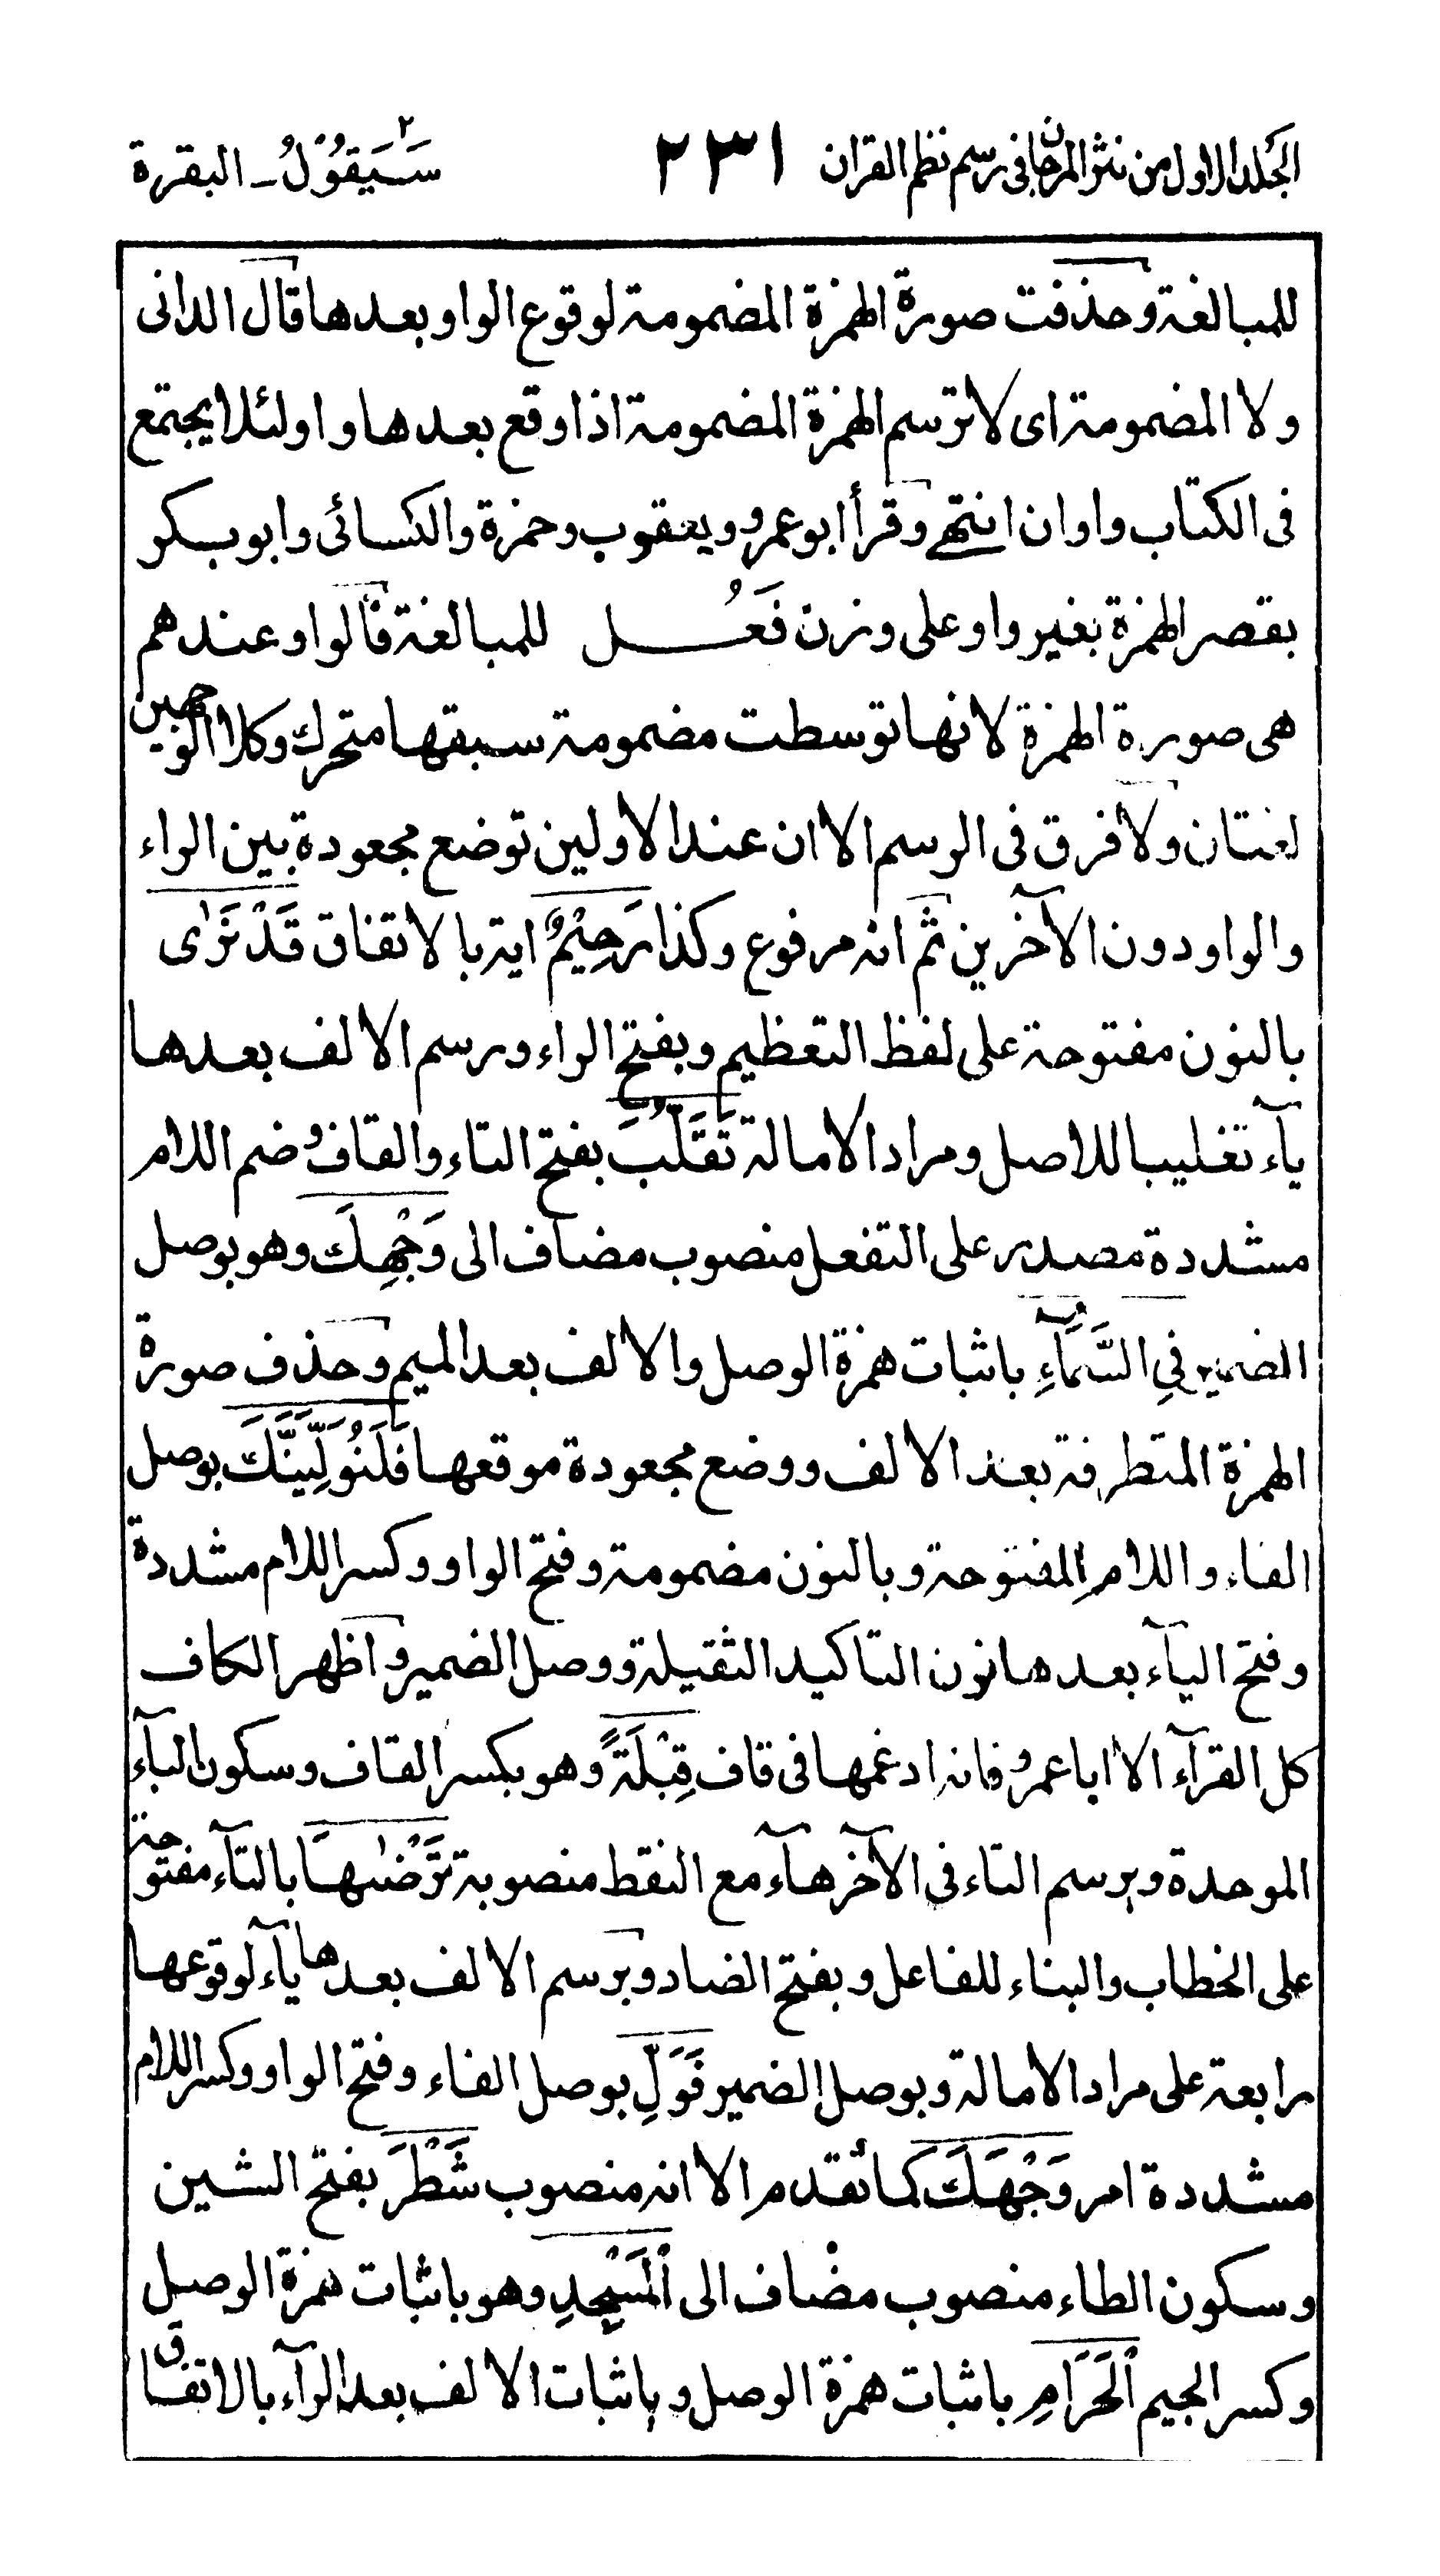 الجلد الاول من نثر المرجان فى رسم نظم القران ٢٣١ سَيَقُوْلُ ـ البقرة ٢
للمبالغة وحذفت صورة الهمزة المضمومة لوقوع الواو بعدها قال الدانى
ولا المضمومة اى لا ترسم الهمزة المضمومة اذا وقع بعدها واو لئلا يجتمع
فى الكتاب واوان انتهى وقرأ ابو عمرو ويعقوب وحمزة والكسائى وابو بكر
بقصر الهمزة بغير واو على وزن فَعُل للمبالغة فالواو عندهم
هى صورة الهمزة لانها توسطت مضمومة سبقها متحرك وكلا الوجهين
لغتان ولا فرق فى الرسم الا ان عند الاولين توضع مجعودة بين الراء
والواو دون الآخرين ثم انه مرفوع وكذا رَحِيْمٌ اية بالاتفاق قَدْ نَرٰى
بالنون مفتوحة على لفظ التعظيم وبفتح الراء ورسم الالف بعدها
يآء تغليبا للاصل ومراد الامالة تَقَلُّبَ بفتح التاء والقاف وضم اللام
مشددة مصدر على التفعل منصوب مضاف الى وَجْهِكَ وهو بوصل
الضمير فِى السَّمَآءِ باثبات همزة الوصل والالف بعد الميم وحذف صورة
الهمزة المتطرفة بعد الالف ووضع مجعودة موقعها فَلَنُوَلِّيَنَّكَ بوصل
الفاء واللام المفتوحة وبالنون مضمومة وفتح الواو وكسر اللام مشددة
وفتح اليآء بعدها نون التاكيد الثقيلة ووصل الضمير واظهر الكاف
كل القرآء الا ابا عمرو فانه ادغمها فى قاف قِبْلَةً وهو بكسر القاف وسكون البآء
الموحدة وبرسم التاء فى الآخر هآء مع النقط منصوبة تَرْضٰىهَا بالتآء مفتوحة
على الخطاب والبناء للفاعل وبفتح الضاد وبرسم الالف بعدها يآء لوقوعها
رابعة على مراد الامالة وبوصل الضمير فَوَلِّ بوصل الفاء وفتح الواو وكسر اللام
مشددة امر وَجْهَكَ كما تقدم الا انه منصوب شَطْرَ بفتح الشين
وسكون الطاء منصوب مضاف الى الْمَسْجِدِ وهو باثبات همزة الوصل
وكسر الجيم الْحَرَامِ باثبات همزة الوصل وباثبات الالف بعد الرآء بالاتفاق